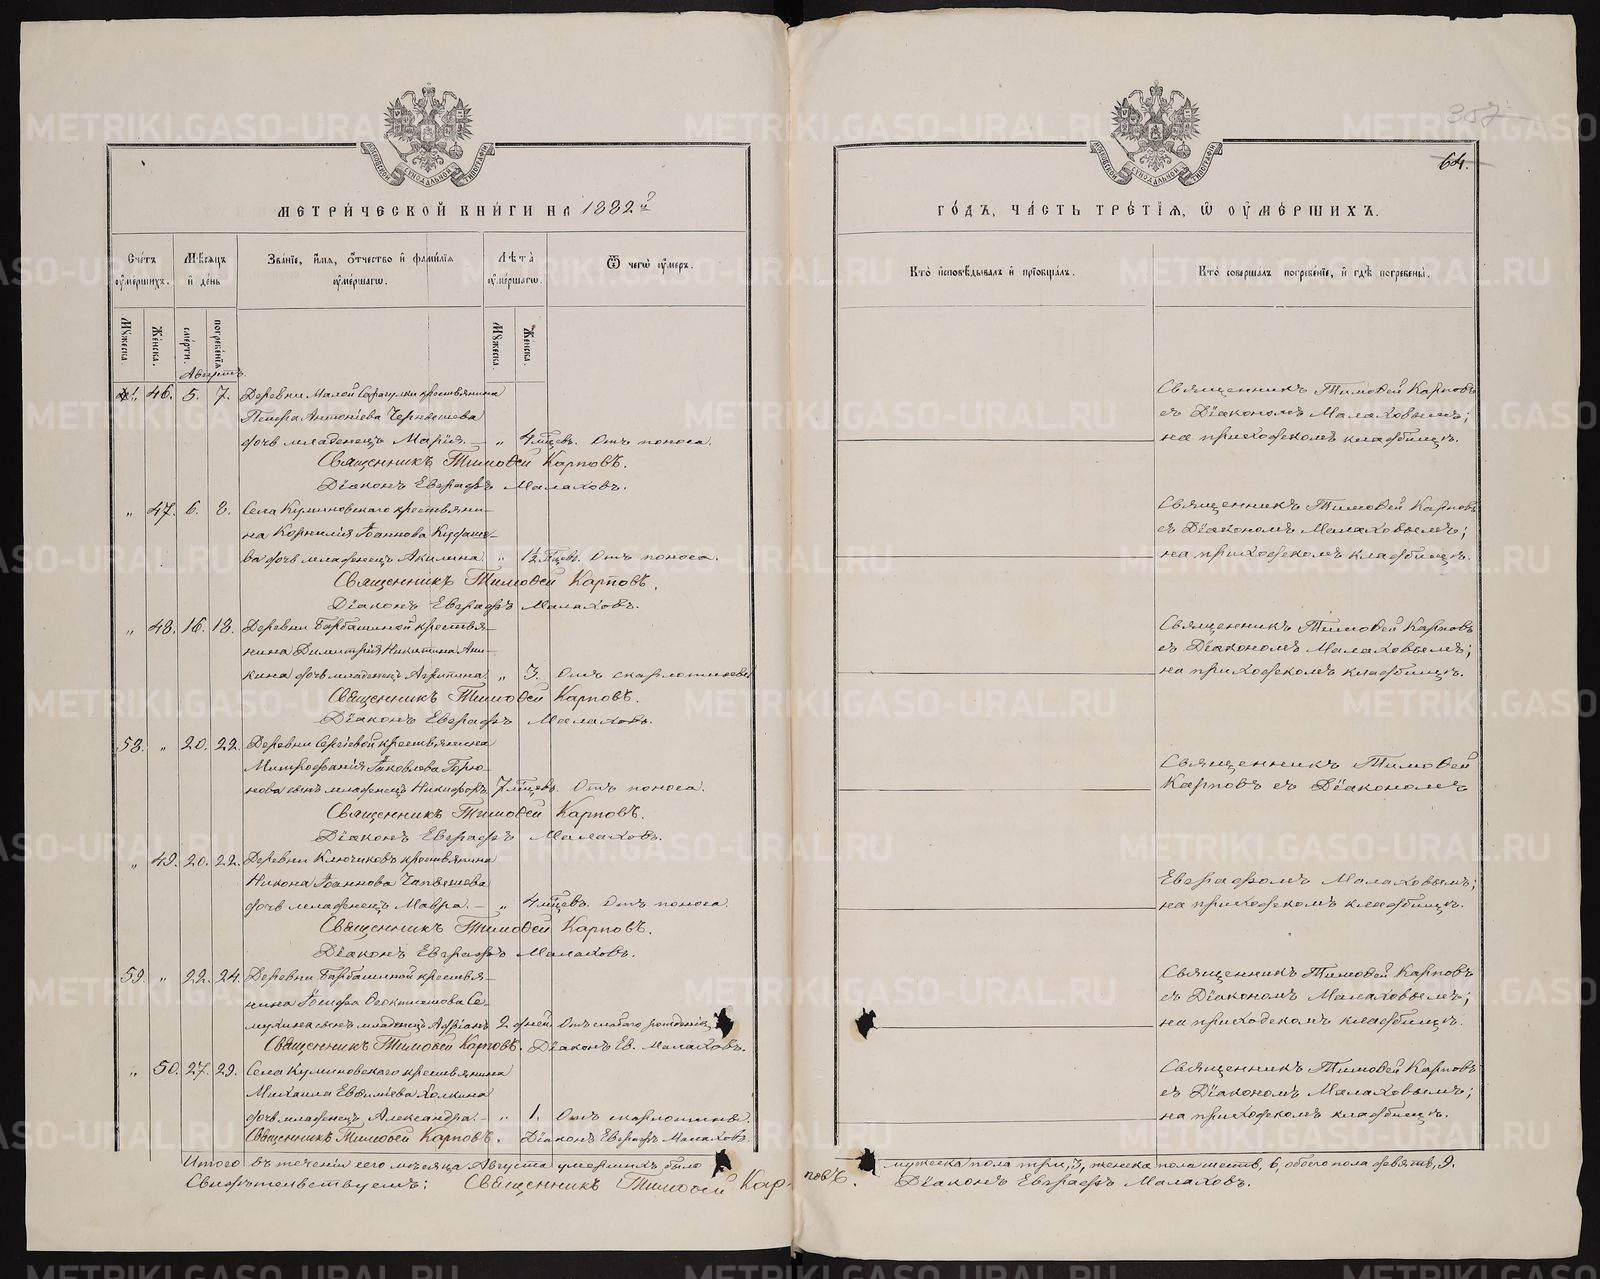 357
64.
МЕТРИЧЕСКОЙ КНИГИ НА 1882й
ГОДЪ, ЧАСТЬ ТРЕТІЯ, Ѡ ОУМЕРШИХЪ.
Счетъ оумершихъ.
Мѣсяцъ и день
Званіе, имя, отчество и фамилія оумершагѡ.
Лѣта оумершагѡ.
Ѿ чегѡ оумеръ.
Кто исповѣдывалъ и пріобщалъ.
Кто совершалъ погребеніе, и гдѣ погребены.
Мꙋжеска
Женска.
смерти.
погребенія
Мꙋжеска
Женска.
Августъ.
„ 46. 5. 7. Деревни Малой Сарапулки крестьянина
Петра Антоніева
дочь младенецъ Марія. — „ 4 мѣцев. Отъ поноса.
Священникъ Тимоѳей Карповъ.
Діаконъ Евграфъ Малаховъ.
Священникъ Тимоѳей Карповъ
съ Діакономъ Малаховымъ;
на приходскомъ кладбищѣ.
„ 47. 6. 8. Села крестьяни-
на Корнилія Іоаннова
ва дочь младенецъ Акилина „ 1½ мѣцев. Отъ поноса.
Священникъ Тимоѳей Карповъ.
Діаконъ Евграфъ Малаховъ.
Священникъ Тимоѳей Карповъ
съ Діакономъ Малаховымъ;
на приходскомъ кладбищѣ.
„ 48. 16. 18. Деревни крестья-
нина Димитрія Никитина Ани-
кина дочь младенецъ Агрипина „ 3. Отъ
Священникъ Тимоѳей Карповъ.
Діаконъ Евграфъ Малаховъ.
Священникъ Тимоѳей Карповъ
съ Діакономъ Малаховымъ;
на приходскомъ кладбищѣ.
58. „ 20. 22. Деревни Сергіевой крестьянина
Митрофанія Іаковлева Горю-
нова сынъ младенецъ Никифоръ 7 мѣцев. Отъ поноса.
Священникъ Тимоѳей Карповъ.
Діаконъ Евграфъ Малаховъ.
Священникъ Тимоѳей
Карповъ съ Діакономъ
„ 49. 20. 22. Деревни Ключиковъ крестьянина
Никона Іоаннова
дочь младенецъ Мавра. — „ 4 мѣцев. Отъ поноса.
Священникъ Тимоѳей Карповъ.
Діаконъ Евграфъ Малаховъ.
Евграфомъ Малаховымъ;
на приходскомъ кладбищѣ.
59. „ 22. 24. Деревни крестья-
нина Іосифа Ѳеоктистова Се-
мухина сынъ младенецъ Адріанъ 2 дней. Отъ слабаго рожденія
Священникъ Тимоѳей Карповъ. Діаконъ Ев. Малаховъ.
Священникъ Тимоѳей Карповъ
съ Діакономъ Малаховымъ;
на приходскомъ кладбищѣ.
„ 50. 27. 29. Села крестьянина
Михаила Евѳиміева Холкина
дочь младенецъ Александра. — „ 1. Отъ скарлатины.
Священникъ Тимоѳей Карповъ. Діаконъ Евграфъ Малаховъ.
Священникъ Тимоѳей Карповъ
съ Діакономъ Малаховымъ;
на приходскомъ кладбищѣ.
Итого въ теченіи сего мѣсяца Августа умершихъ было мужеска пола три, 3, женска пола шесть, 6, обоего пола девять, 9.
Свидѣтельствуемъ: Священникъ Тимоѳей Карповъ. Діаконъ Евграфъ Малаховъ.
METRIKI.GASO-URAL.RU